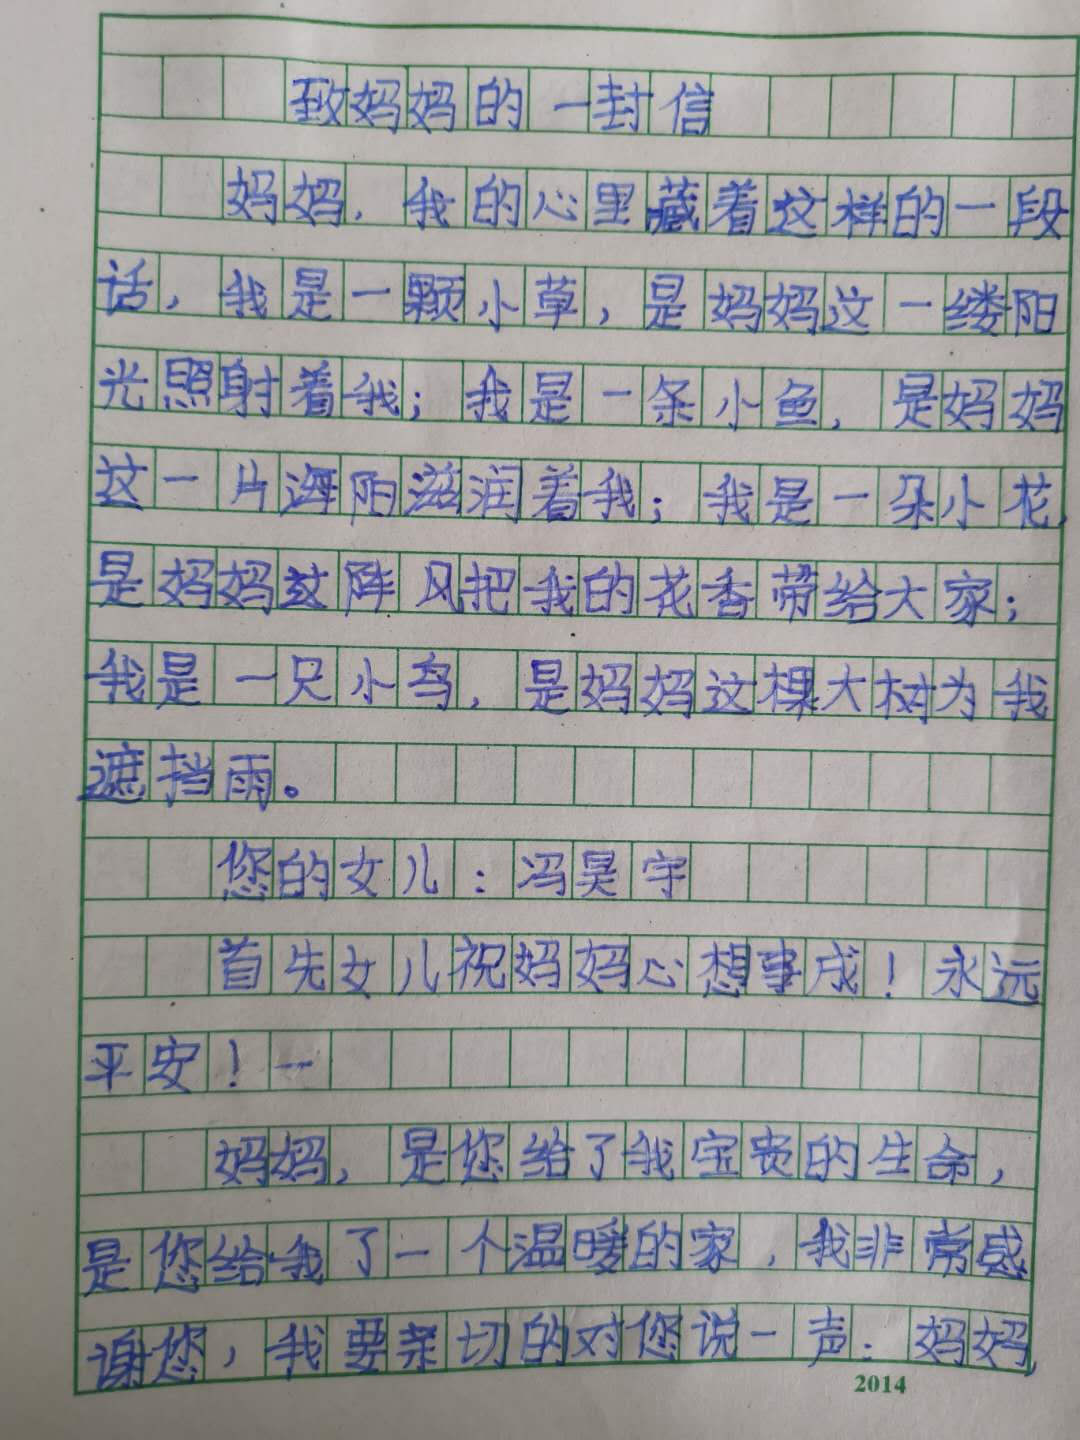 致妈妈的一封信
妈妈，我的心里藏着这样的一段
话，我是一颗小草，是妈妈这一缕阳
光照射着我；我是一条小鱼，是妈妈
这一片海阳滋润着我；我是一朵小花，
是妈妈这阵风把我的花香带给大家；
我是一只小鸟，是妈妈这棵大树为我
遮挡雨。
您的女儿：冯昊宇
首先女儿祝妈妈心想事成！永远
平安！--
妈妈，是您给了我宝贵的生命，
是您给我了一个温暖的家，我非常感
谢您，我要亲切的对您说一声：妈妈，
2014